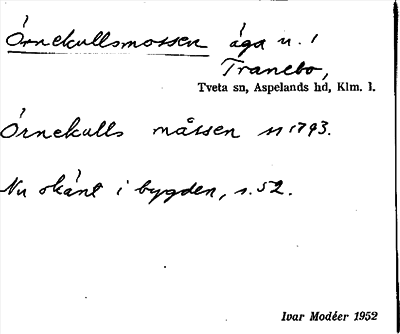 Örnekullsmossen äga n. 1
Tranebo,
Tveta sn, Aspelands hd, Klm. l.
Örnekulls måssen 1793.
Nu okänt i bygden, s. 52.
Ivar Modéer 1952